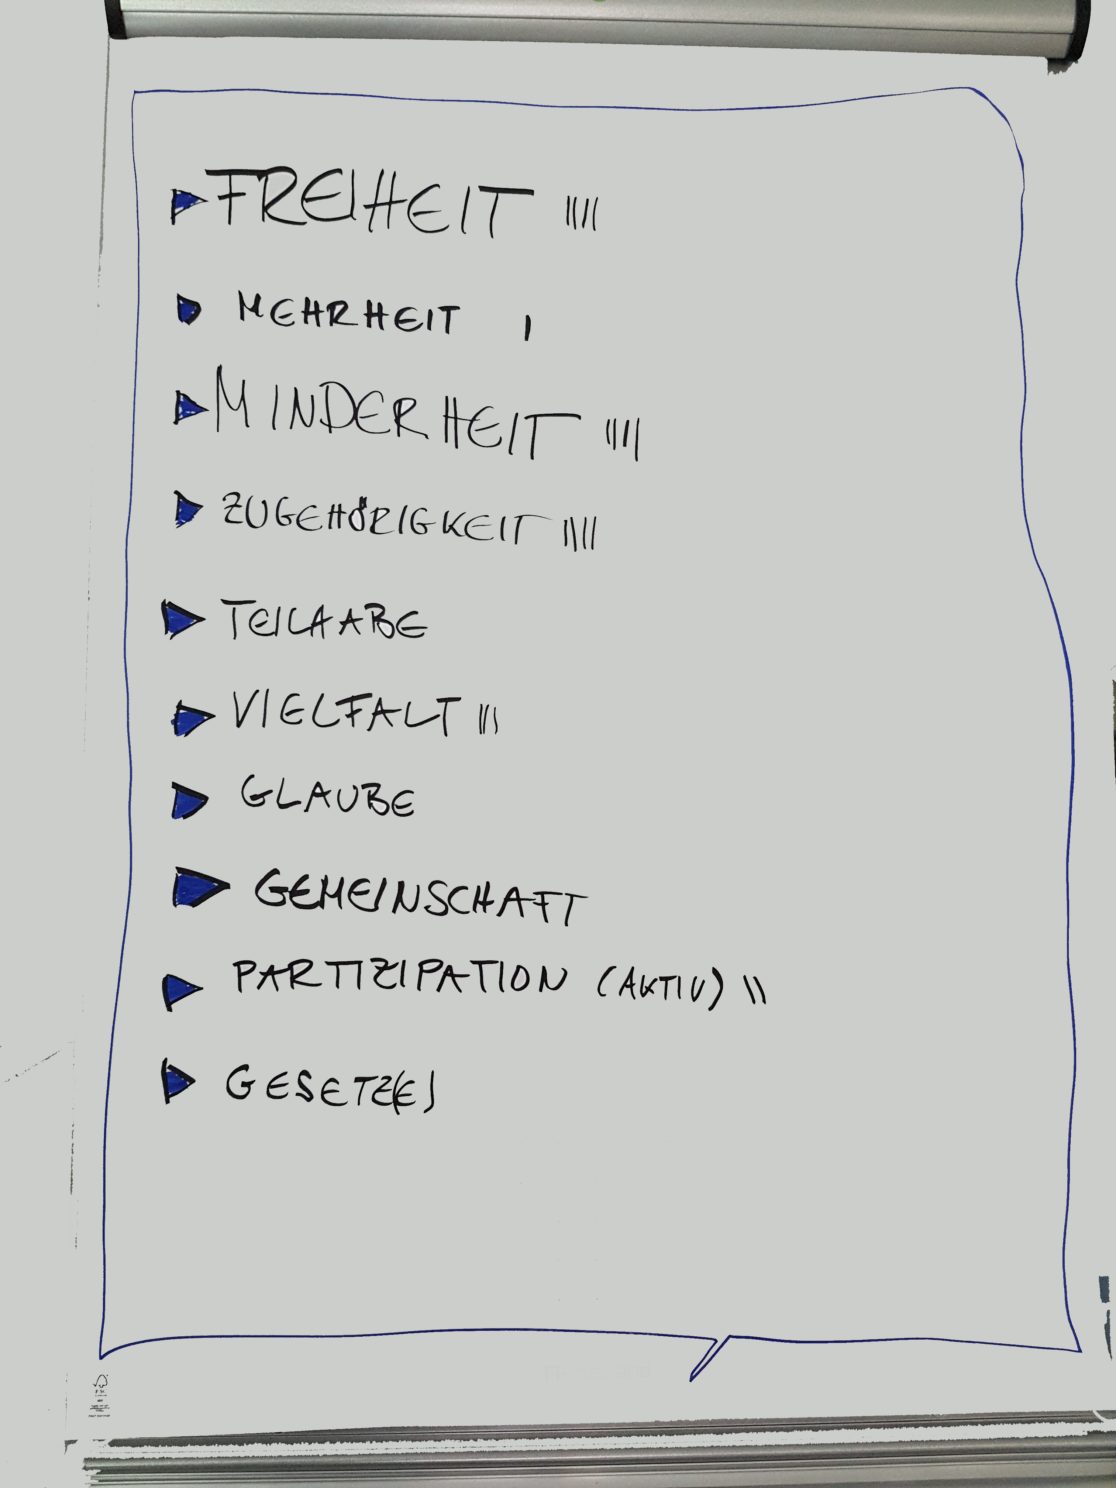 FREIHEIT ||||
MEHRHEIT |
MINDERHEIT ||||
ZUGEHÖRIGKEIT ||||
TEILHABE
VIELFALT |||
GLAUBE
GEMEINSCHAFT
PARTIZIPATION (AKTIV) ||
GESETZ(E)